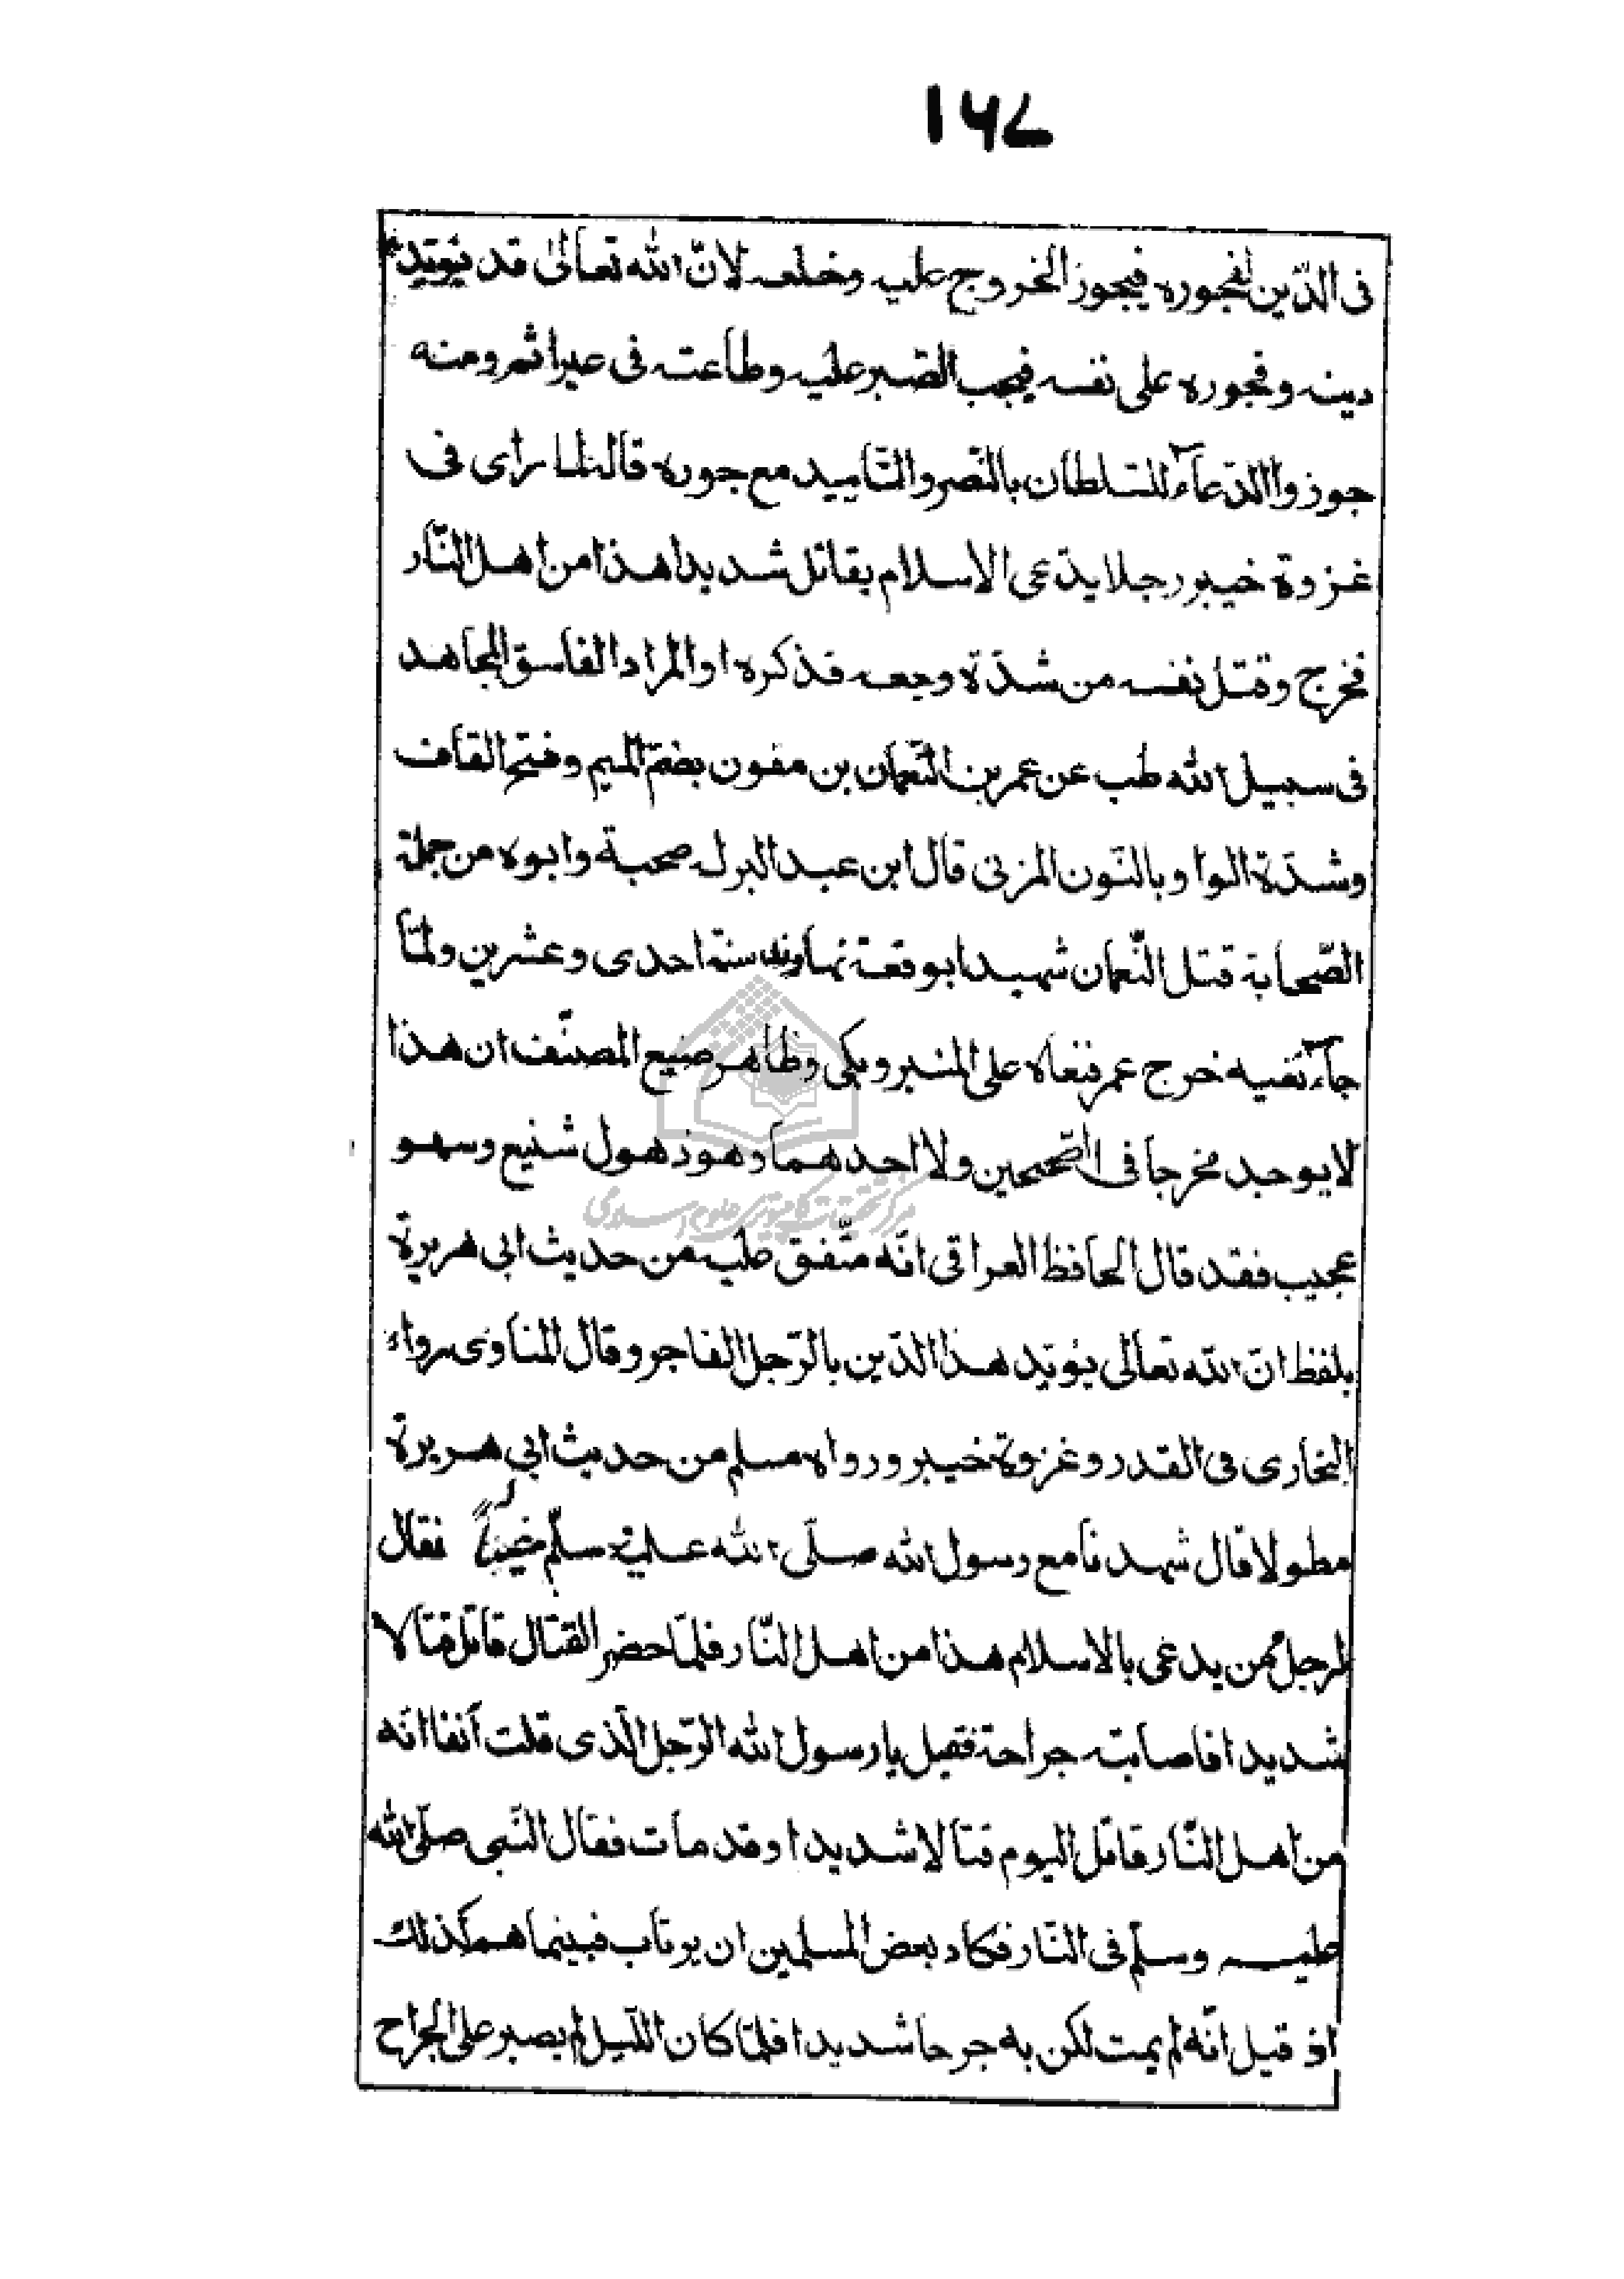 ١٦٧
فى الدّين لفجوره فيجوز الخروج عليه وخلعه لانّ الله تعالى قد يؤيّد به
دينه و فجوره على نفسه فيجب الصّبر عليه و طاعته فى غير اثم و منه
جوزوا الدّعآء للسّلطان بالنّصر والتّاييد مع جوره قاله لما راى فى
غزوة خيبر رجلا يدّعى الاسلام يقاتل شديدا هذا من اهل النّار
فخرج وقتل نفسه من شدّة وجعه فذكره او المراد الفاسق المجاهد
فى سبيل الله طب عن عمر بن النّعمان بن مقون بضمّ الميم و فتح القاف
وشدّة الواو بالنّون المزنى قال ابن عبد البر له صحبة وابوه من جملة
الصّحابة قتل النّعمان شهيدا بوقعة نهاوند سنة احدى وعشرين ولمّا
جآء نعيه خرج عمر فنعاه على المنبر وبكى وظاهر صنيع المصنّف ان هذا
لا يوجد مخرجا فى الصّحيحين ولا احدهما وهو ذهول شنيع وسهو
عجيب فقد قال الحافظ العراقى انّه متّفق عليه من حديث ابى هريرة
بلفظ انّ الله تعالى يؤيّد هذا الدّين بالرّجل الفاجر وقال المناوى رواه
البخارى فى القدر و غزوة خيبر و رواه مسلم من حديث ابى هريرة
مطولا قال شهدنا مع رسول الله صلّى الله عليه وسلّم خيبر فقال
لرجل ممن يدعى بالاسلام هذا من اهل النّار فلمّا حضر القتال قاتل قتالا
شديدا فاصابته جراحة فقيل يا رسول الله الرّجل الّذى قلت آنفا انّه
من اهل النّار قاتل اليوم قتالا شديدا وقد مات فقال النّبى صلّى الله
عليه وسلّم فى النّار فكاد بعض المسلمين ان يرتاب فبينما هم كذلك
اذ قيل انّه لم يمت لكن به جرحا شديدا فلمّا كان اللّيل لم يصبر على الجراح
مركز تحقيقات كامپيوترى علوم اسلامى